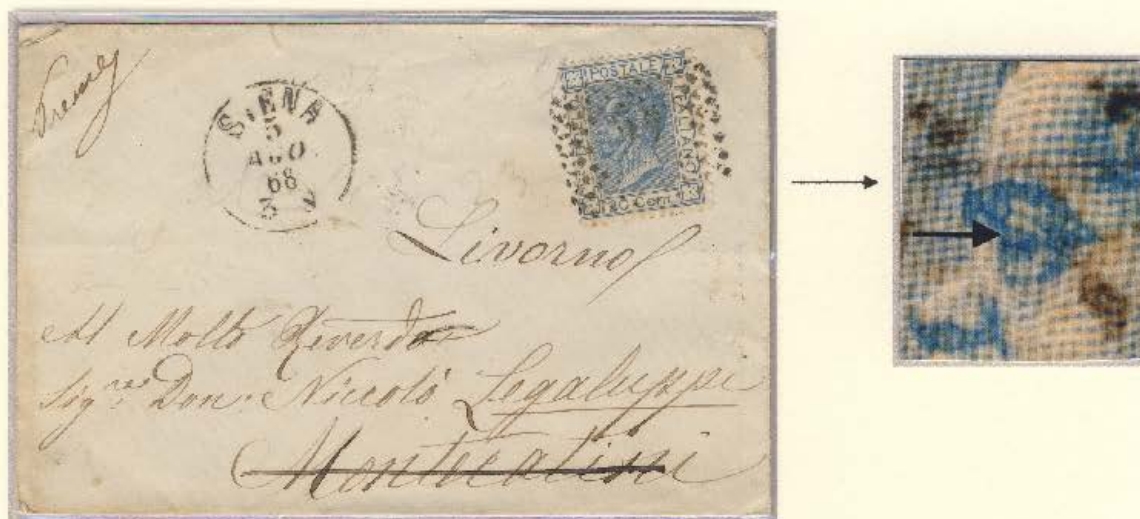 SIENA
5
AGO
68
POSTALE
ITALIANO
20 Cent
Livorno
Al Molto Reverdo
Sigre Don Niccolò Legaluppi
Montecatini